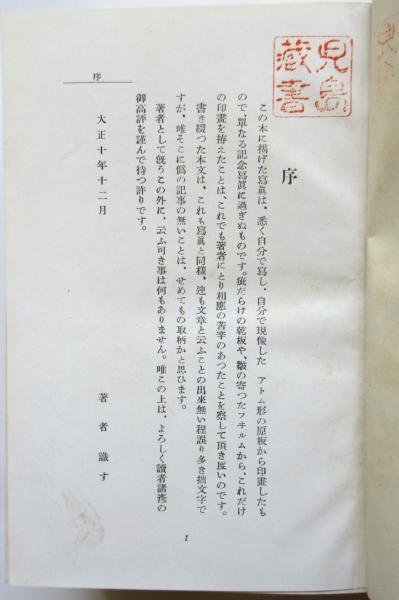 兒島
藏書
序
この本に揭げた寫眞は、悉く自分で寫し、自分で現像した アトム形の原板から印畫したも
ので、單なる記念寫眞に過ぎぬものです。疵だらけの乾板や、皺の寄つたフヰルムから、これだけ
の印畫を拵えたことは、これでも著者にとり相應の苦辛のあつたことを察して頂き度いのです。
書き綴つた本文は、これも寫眞と同樣、迚も文章と云ふことの出來無い程誤り多き拙文字で
すが、唯そこに僞の記事の無いことは、せめてもの取柄かと思ひます。
著者として旣うこの外に、云ふ可き事は何もありません。唯この上は、よろしく讀者諸彥の
御高評を謹んで待つ許りです。
大正十年十二月
著者識す
序
1